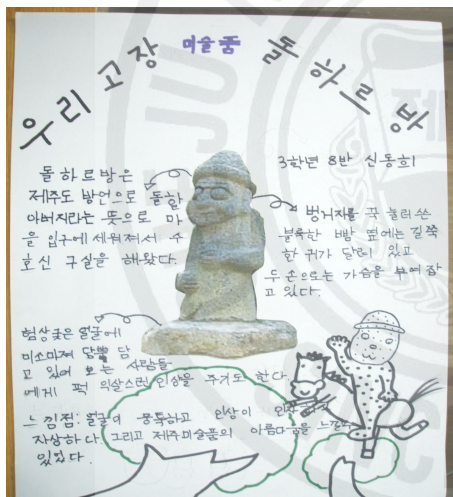 우리고장 미술품 돌하르방
3학년 8반 신동희
돌하르방은
제주도 방언으로 돌할
아버지라는 뜻으로 마
을 입구에 세워져서 수
호신 구실을 해왔다.
벙거지를 푹 눌러쓴
불룩한 뺨 옆에는 길쭉
한 귀가 달려 있고
두 손으로는 가슴을 부여잡
고 있다.
험상궂은 얼굴에
미소마저 담뿍 담
고 있어 보는 사람들
에게 퍽 익살스런 인상을 주기도 한다.
느낌점: 얼굴이 뭉툭하고 인상이
자상하다. 그리고 제주미술품의 아름다움을
있었다.